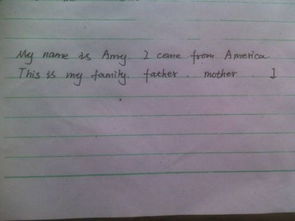 My name is Amy. I come from America.
This is my family. father. mother. I